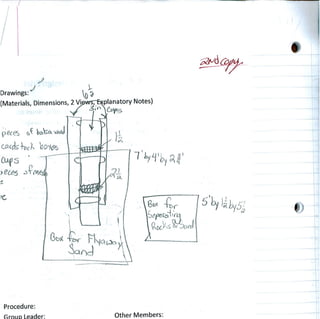 2nd copy
Drawings:
(Materials, Dimensions, 2 Views, Explanatory Notes)
6 1/2
3 in
Cups
pieces of balsa wood
1 1/2
cardstock boxes
7" by 4" by 2
cups
pieces of mesh
2 1/2
Box for
Seperating
Rocks & Sand
5" by 1 1/2 by 5 1/2
Box for Flyaway
Sand
Procedure:
Group Leader:
Other Members: